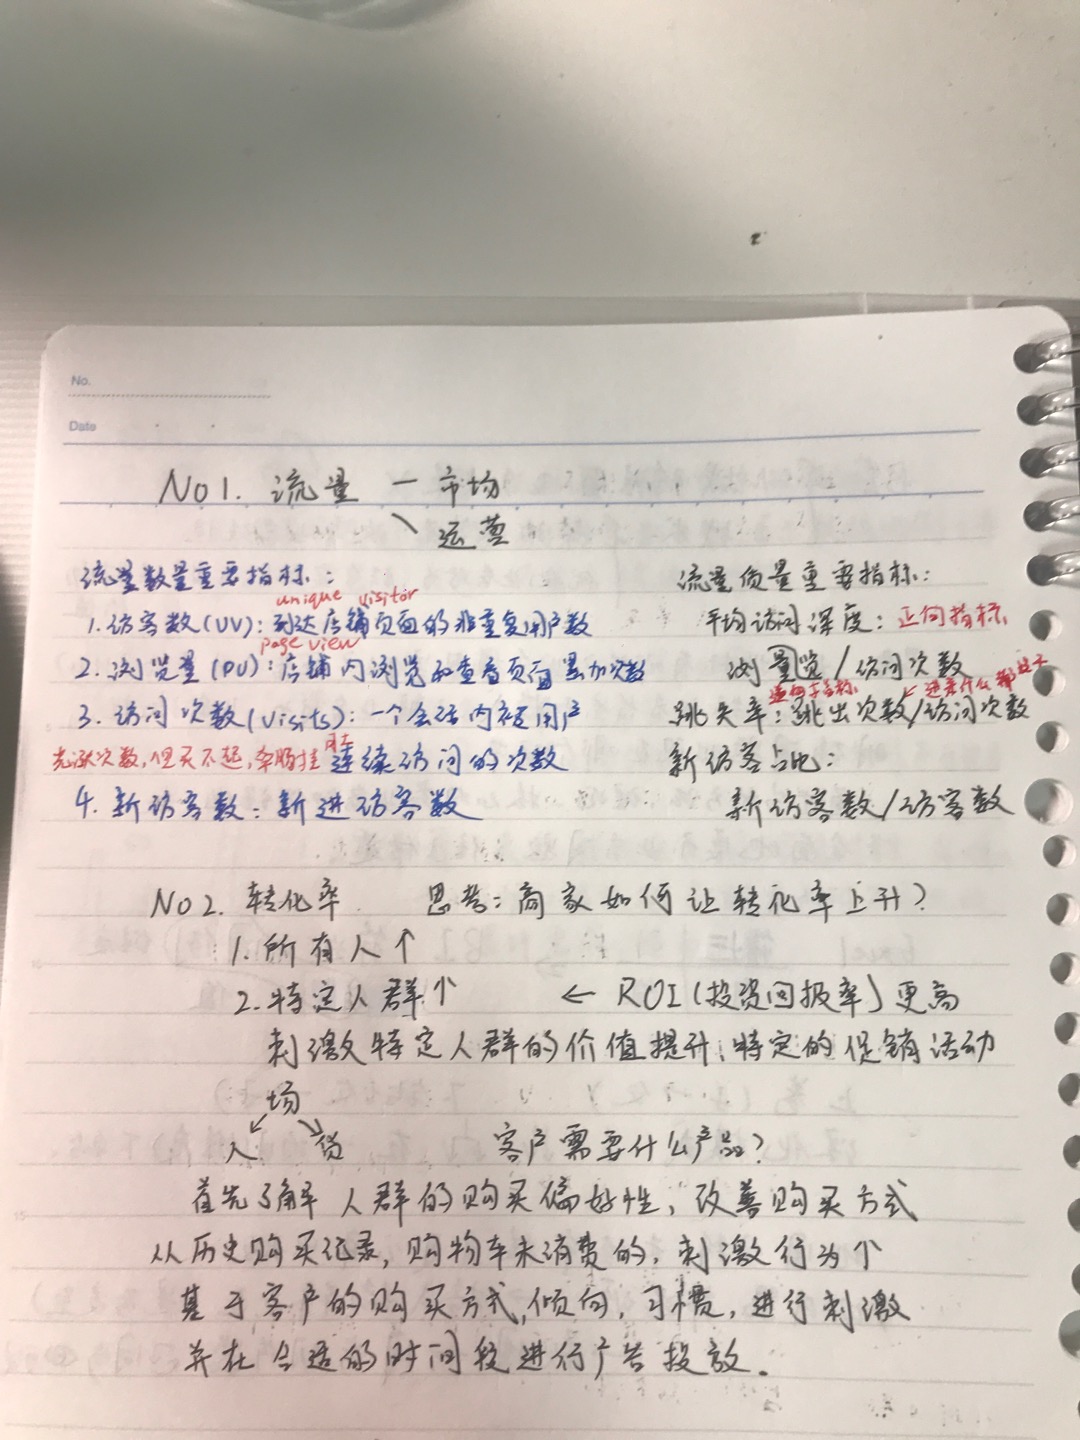 No.
Date
NO1. 流量 — 市场
运营
流量数量重要指标：
unique visitor
1.访客数(UV)：到达店铺页面的非重复用户数
page view
2.浏览量(PV)：店铺内浏览和查看页面累加次数
3.访问次数(Visits)：一个会话内被用户
连续访问的次数
4.新访客数：新进访客数
流量质量重要指标：
平均访问深度：正向指标
浏览量/访问次数
跳失率：跳出次数/访问次数
新访客占比：
新访客数/访客数
NO2. 转化率 思考：商家如何让转化率上升？
1.所有人↑
2.特定人群↑ ← ROI(投资回报率)更高
刺激特定人群的价值提升、特定的促销活动
场
人 货 客户需要什么产品？
首先了解人群的购买偏好性，改善购买方式
从历史购买记录，购物车未消费的，刺激行为个
基于客户的购买方式，倾向，习惯，进行刺激
并在合适的时间段进行广告投放.